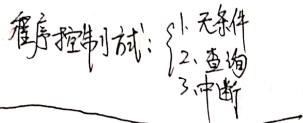 程序控制方式：
1. 无条件
2. 查询
3. 中断